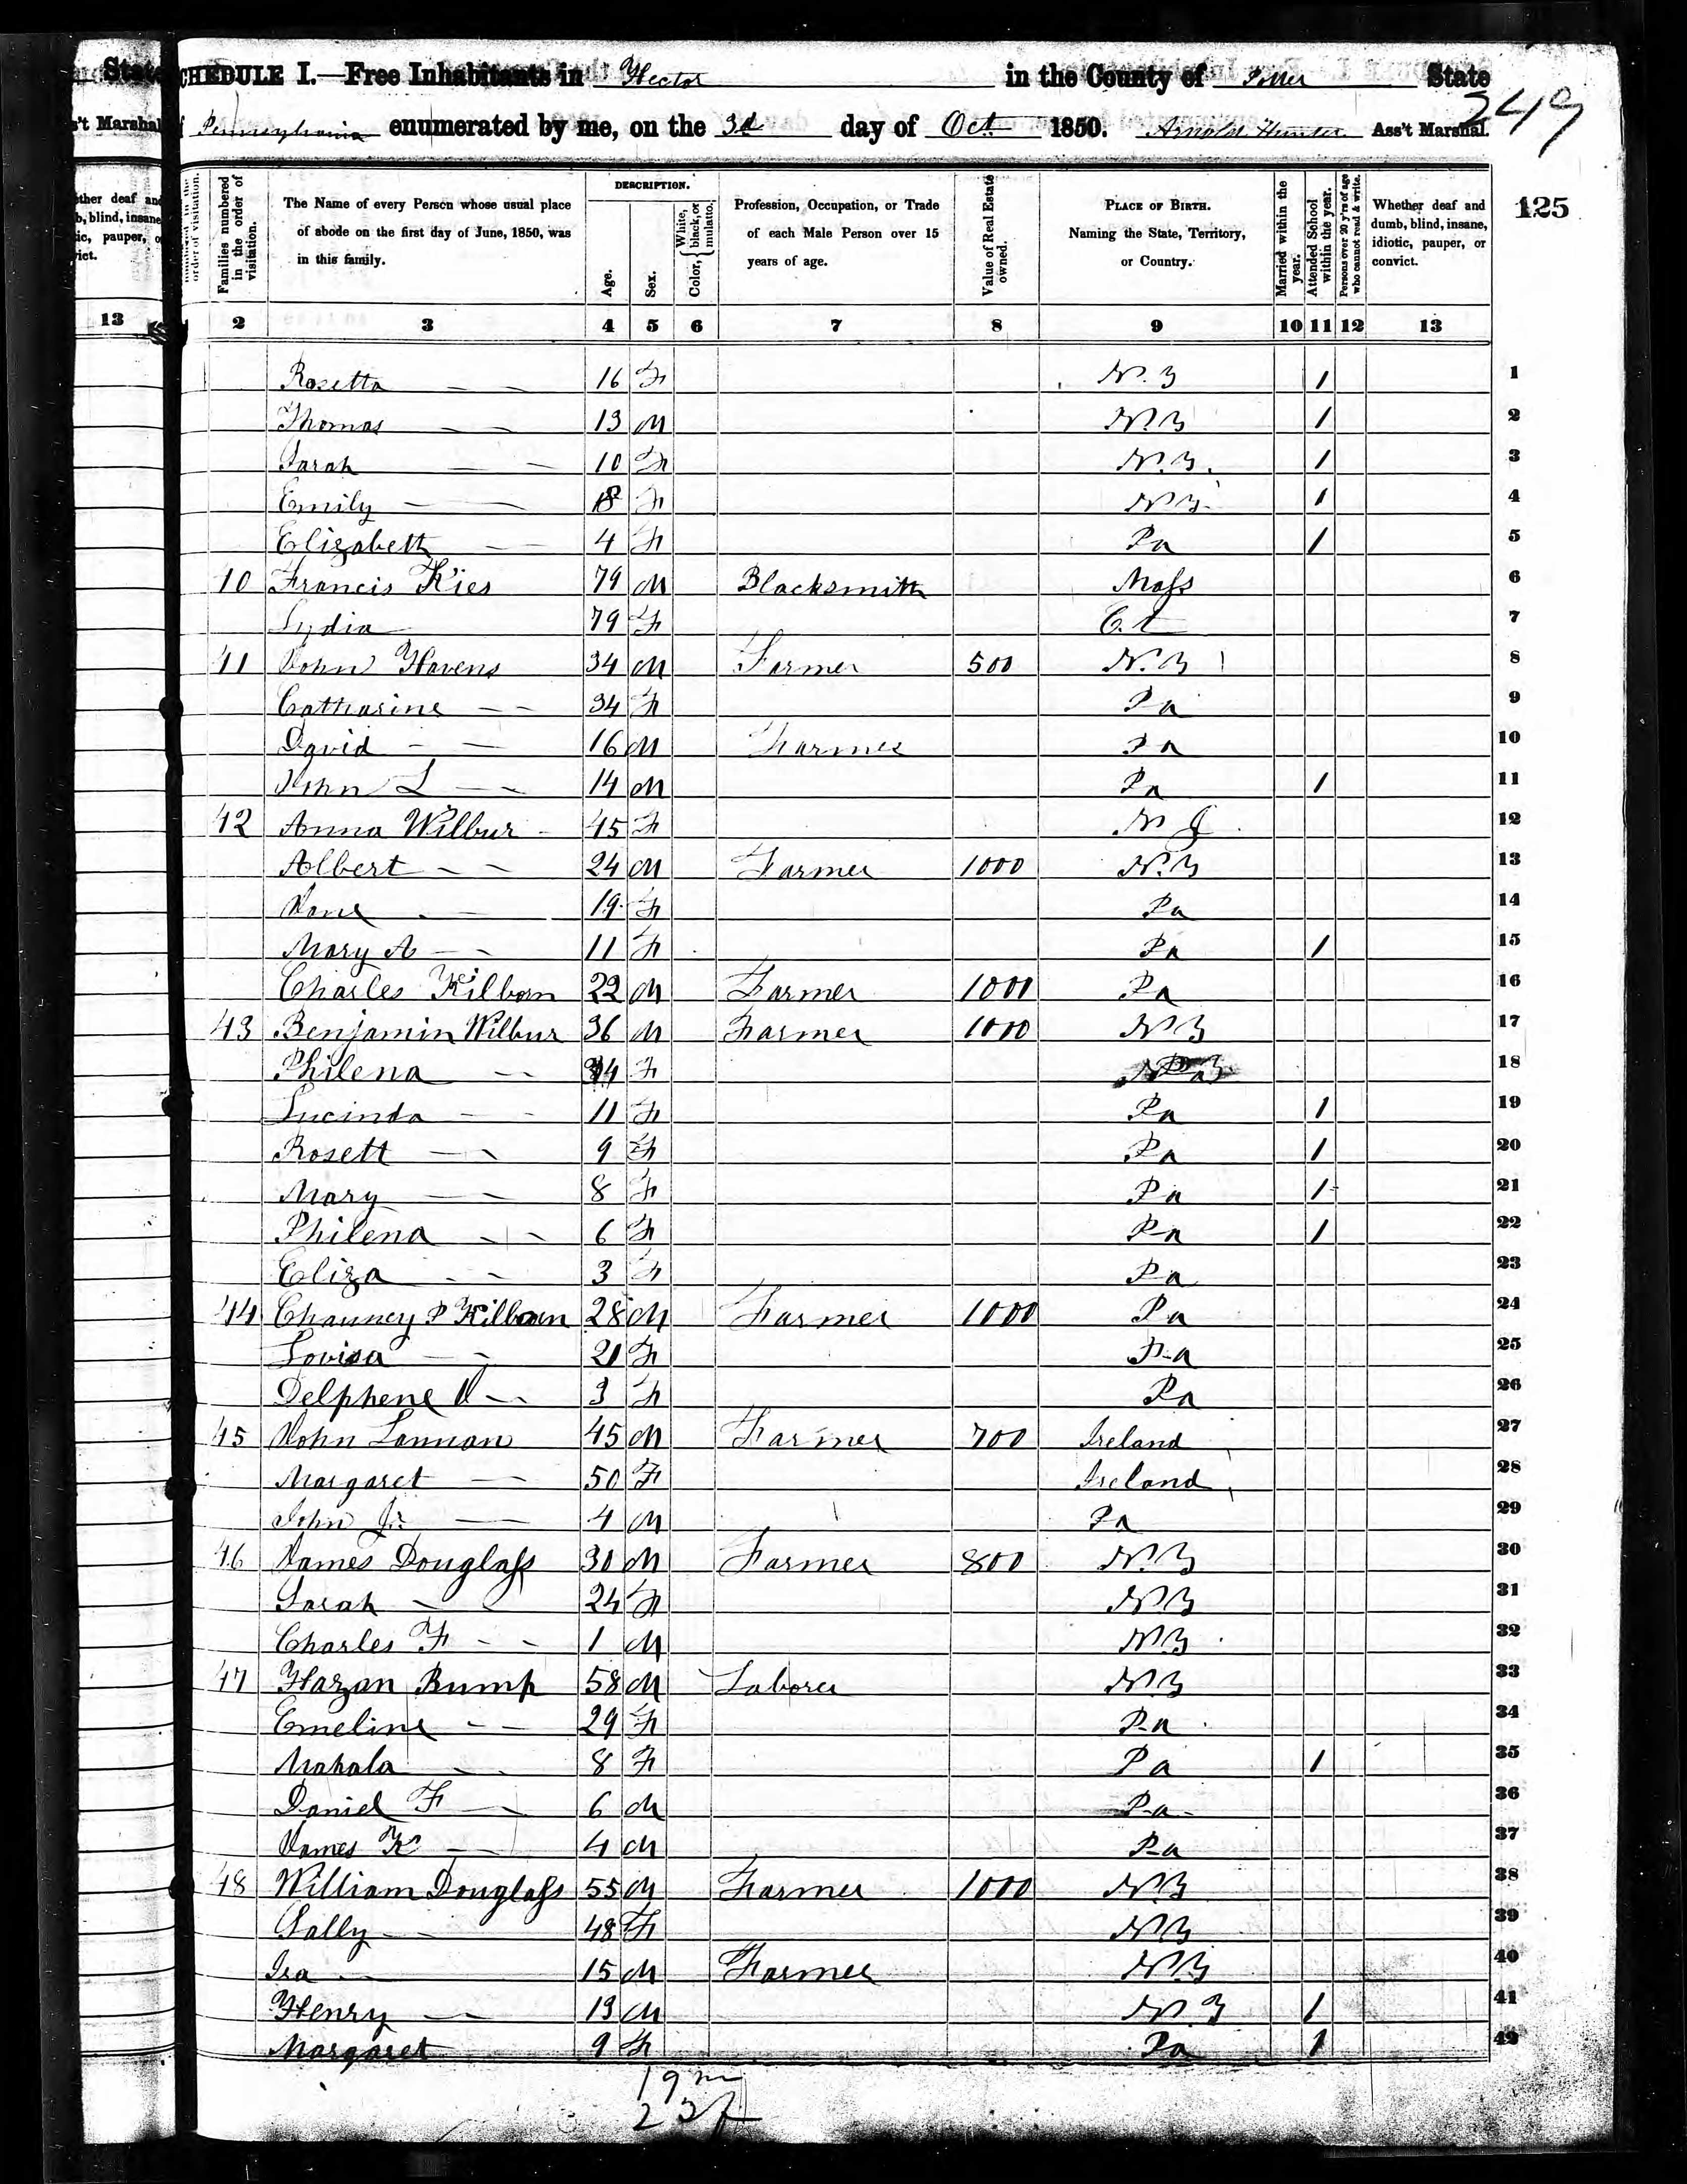 State SCHEDULE I.—Free Inhabitants in Hector in the County of Potter State
249
's't Marshal of Pennsylvania enumerated by me, on the 3d day of Oct 1850. Arnold Hunter Ass't Marshal.
125
DESCRIPTION.
Families numbered in the order of visitation.
The Name of every Person whose usual place of abode on the first day of June, 1850, was in this family.
Age.
Sex.
Color, { White, black, or mulatto.
Profession, Occupation, or Trade of each Male Person over 15 years of age.
Value of Real Estate owned.
PLACE OF BIRTH. Naming the State, Territory, or Country.
Married within the year.
Attended School within the year.
Persons over 20 y'rs of age who cannot read & write.
Whether deaf and dumb, blind, insane, idiotic, pauper, or convict.
13 2 3 4 5 6 7 8 9 10 11 12 13
Rosetta — — 16 F N.Y 1 1
Thomas — — 13 M N.Y 1 2
Sarah — — 10 F N.Y. 1 3
Emily — — 8 F N.Y. 1 4
Elizabeth — — 4 F Pa 1 5
40 Francis Kies 79 M Blacksmith Mass 6
Lydia 79 F Ct 7
41 John Havens 34 M Farmer 500 N.Y 8
Catharine — — 34 F Pa 9
David — — 16 M Farmer Pa 10
John L — — 14 M Pa 1 11
42 Anna Wilbur — 45 F N J 12
Albert — — 24 M Farmer 1000 N.Y 13
Jane — 19 F Pa 14
Mary A — — 11 F Pa 1 15
Charles Kilborn 22 M Farmer 1000 Pa 16
43 Benjamin Wilbur 36 M Farmer 1000 N.Y 17
Philena — 34 F 18
Lucinda — — 11 F Pa 1 19
Rosett — — 9 F Pa 1 20
Mary — — 8 F Pa 1 21
Philena — — 6 F Pa 1 22
Eliza — — 3 F Pa 23
44 Chauncy P Kilborn 28 M Farmer 1000 Pa 24
Lovisa — — 21 F Pa 25
Delphene J — 3 F Pa 26
45 John Lannan 45 M Farmer 700 Ireland 27
Margaret — 50 F Ireland 28
John Jr. — 4 M Pa 29
46 James Douglass 30 M Farmer 800 N.Y 30
Sarah — 24 F N.Y 31
Charles F — — 1 M N.Y 32
47 Hazan Bump 58 M Laborer N.Y 33
Emeline — — 29 F Pa 34
Mahala — 8 F Pa 1 35
Daniel F — 6 M Pa 36
James K — 4 M Pa 37
48 William Douglass 55 M Farmer 1000 N.Y 38
Sally — 48 F N.Y 39
Ira — 15 M Farmer N.Y 40
Henry — 13 M N.Y 1 41
Margaret 9 F Pa 1 42
19 m
23 f